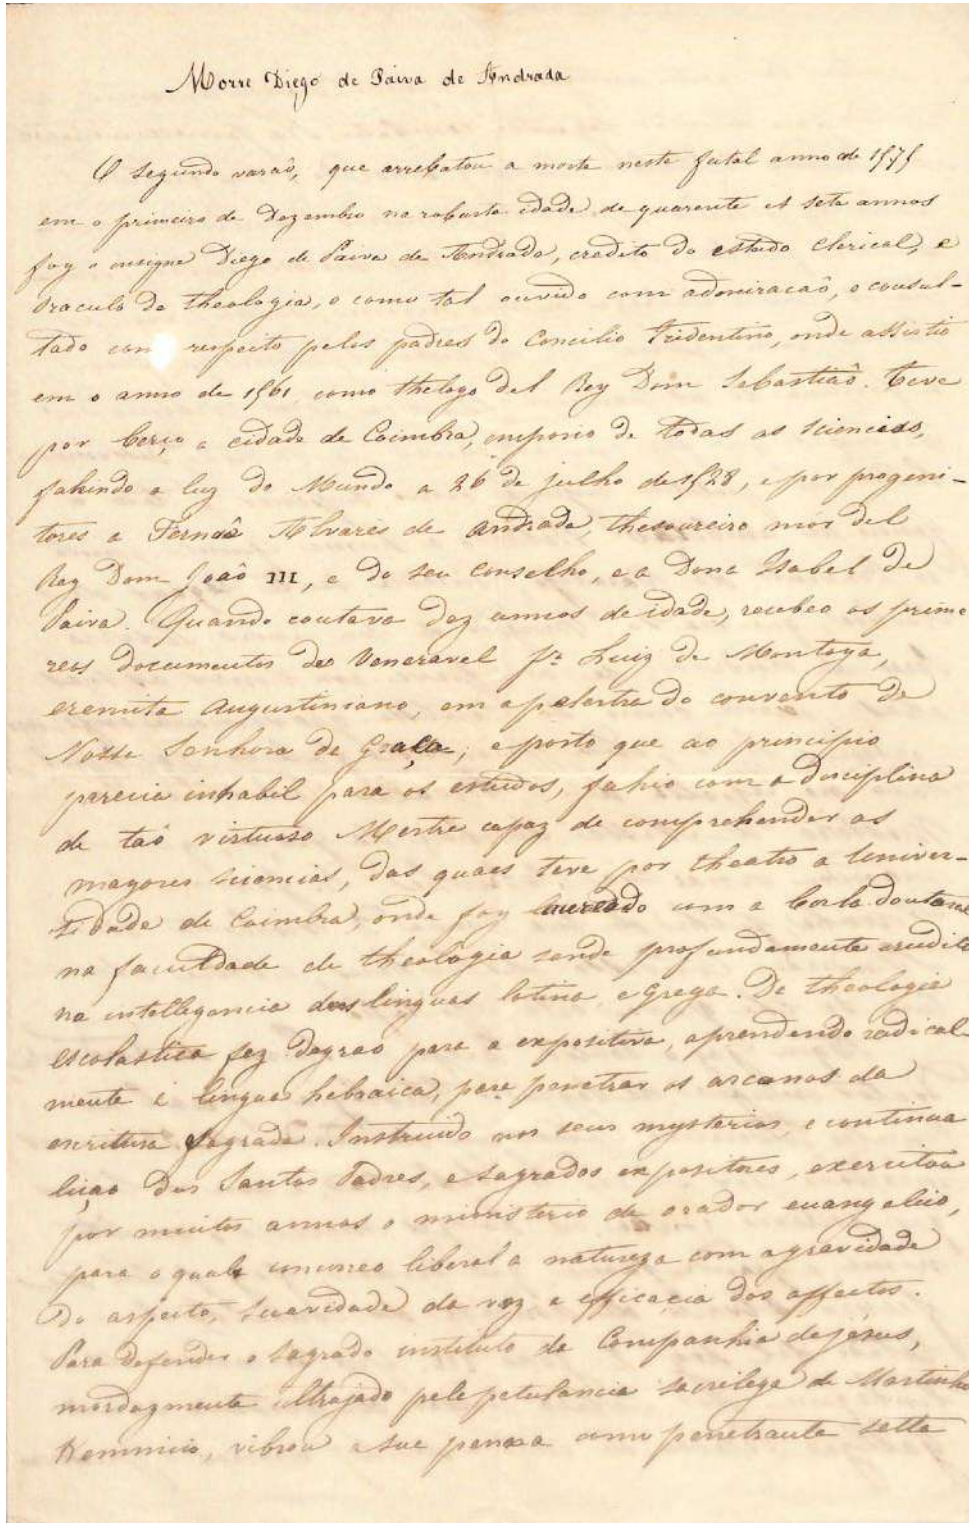 Morre Diego de Paiva de Andrada
O segundo varaô, que arrebatou a morte neste fatal anno de 1575
em o primeiro de Dezembro na robusta idade de quarente et sete annos
foy o insigne Diego de Paiva de Andrada, credito do estado clerical, e
Oraculo da theologia, e como tal ouvido com admiracaô, e consul-
tado com respeito pelos padres do Concilio Tridentino, onde assistio
em o anno de 1561 como thelogo del Rey Dom Sebastiaô. Teve
por berço a cidade de Coimbra, emporio de todas as sciencias,
sahindo a luz do Mundo a 26 de julho de 1528, e por progeni-
tores a Fernaô Alvares de Andrade, thesoureiro mór del
Rey Dom Joaô III, e do seu conselho, e a Dona Isabel de
Paiva. Quando contava dez annos de idade, recebeo os prime
reos documentos do Veneravel fr. Luiz de Montoya,
eremita Augustiniano, em a palestra do convento de
Nossa Senhora da Graça; e posto que ao principio
parecia inhabil para os estudos, sahio com a disciplina
de taô virtuoso Mestre capaz de comprehender as
mayores sciencias, das quaes teve por theatro a Univer-
sidade de Coimbra, onde foy laureado com a borla doutoral
na faculdade de theologia sendo profundamente erudito
na intellegencia das linguas latina e Grega. Da theologia
escolastica fez degrao para a expositiva, aprendendo radical-
mente a lingua hebraica, para penetrar os arcanos da
escritura sagrada. Instruido nos seus mysterios, e continua
liçao dos Santos Padres, e sagrados expositores, exercitou
por muitos annos o ministerio de orador euangelico,
para o quale concorreo liberal a natureza com a gravidade
do aspeito, suavidade da voz e efficacia dos affectos.
Para defender o sagrado instituto da Companhia de jesus,
mordazmente ultrajado pela petulancia sacrilega de Martinho
Kemnicio, vibrou a sua penna como penetrante setta